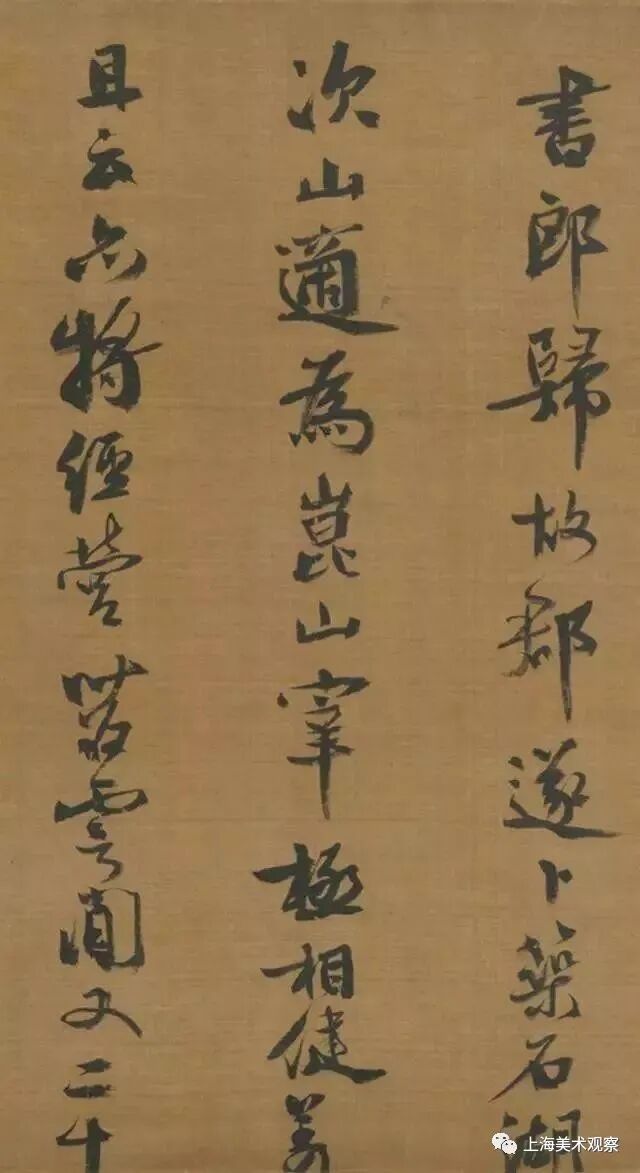 書郎歸故郡遂卜築石湖
次山適為崑山宰極相健羨
且云亦將經營苕霅間又二十
上海美术观察